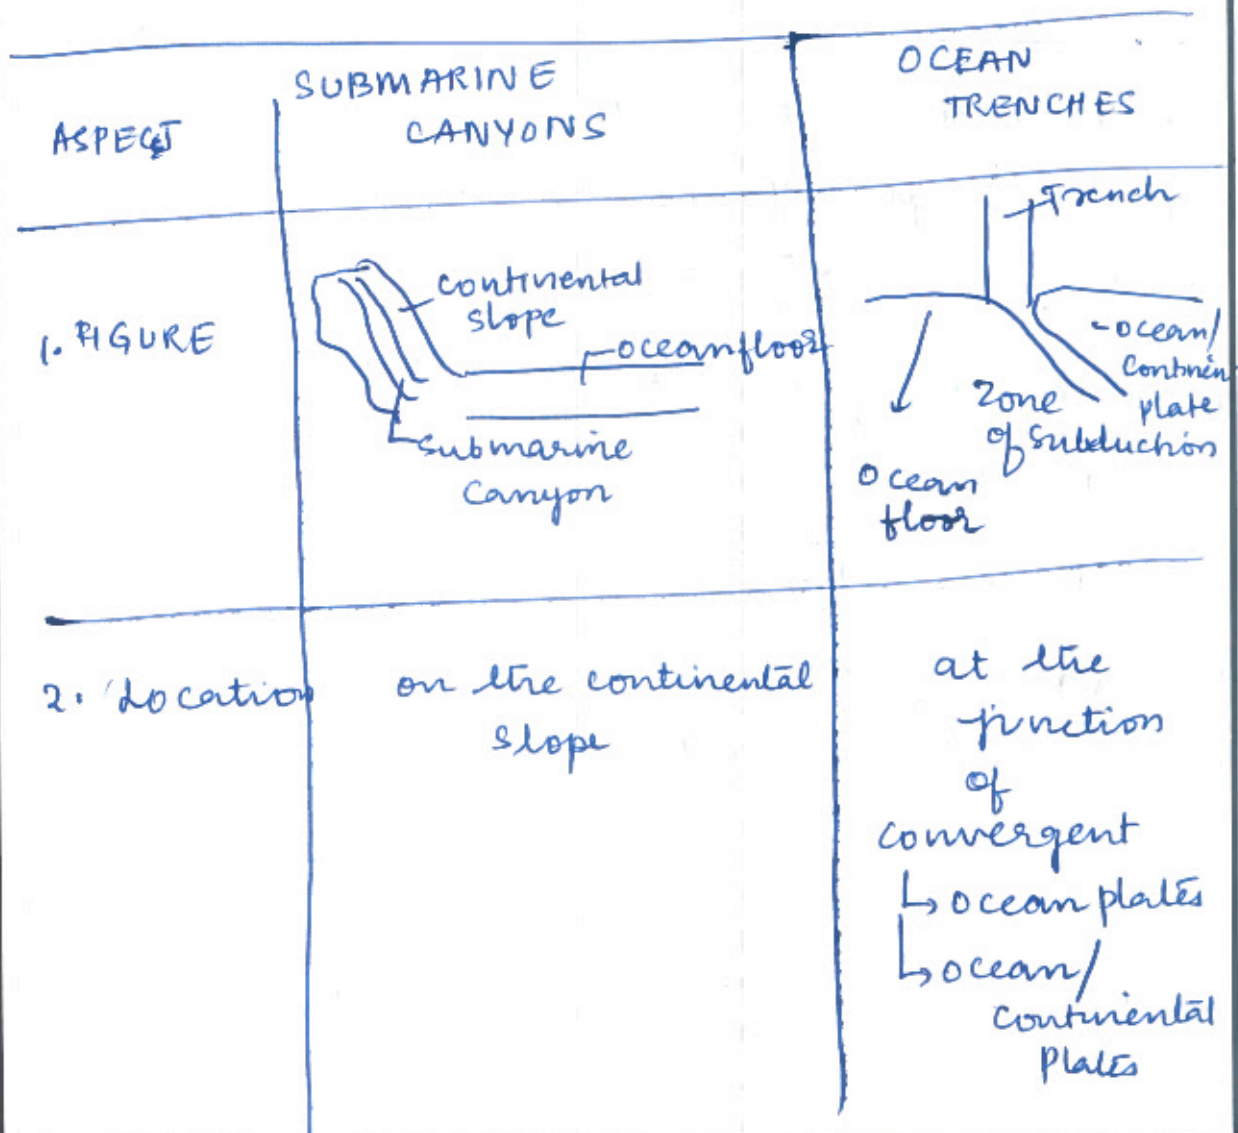 ASPECT
SUBMARINE
CANYONS
OCEAN
TRENCHES
1. FIGURE
continental
slope
oceanfloor
submarine
canyon
Trench
ocean/
continen
plate
Zone
of subduction
Ocean
floor
2. Location
on the continental
slope
at the
junction
of
convergent
↳ ocean plates
↳ ocean/
continental
plates